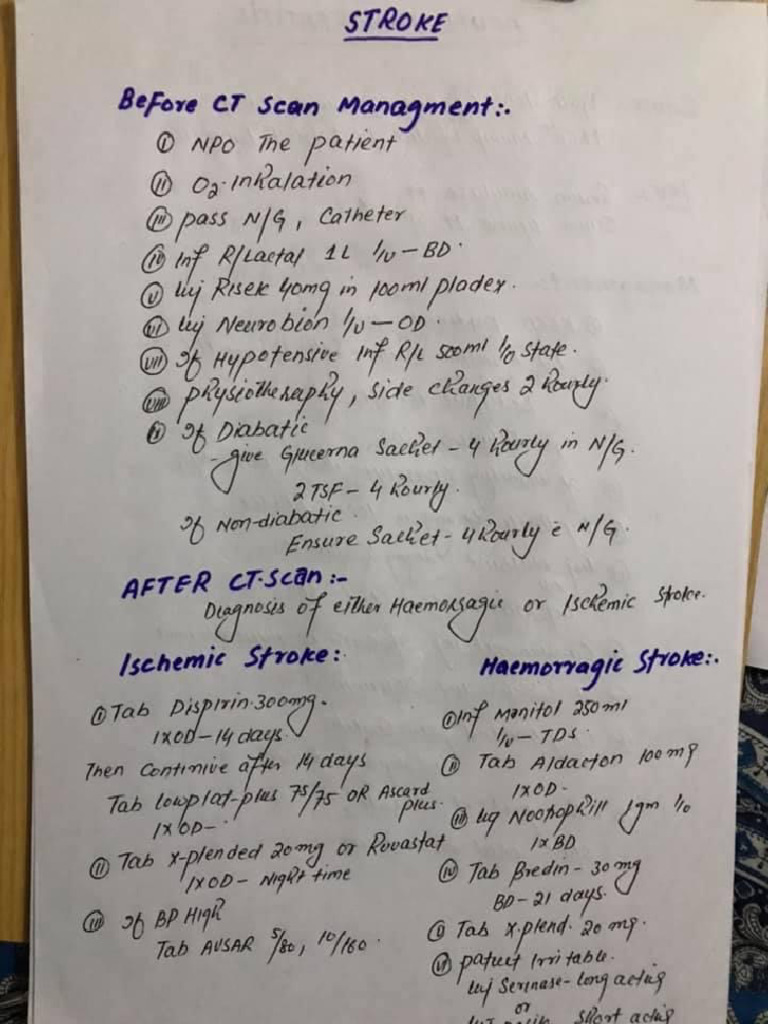 STROKE
Before CT Scan Managment:-
(i) NPO The patient
(ii) O2-Inhalation
(iii) pass N/G, Catheter
(iv) Inf R/Lactat 1L I/V - BD.
(v) Inj Risek 40mg in 100ml pladex.
(vi) Inj Neurobion I/V - OD.
(vii) If Hypotensive Inf R/L 500ml I/V State.
(viii) physiotheraphy, side changes 2 hourly.
(ix) If Diabatic
- give Glucerna Sachet - 4 hourly in N/G.
2 TSF - 4 hourly.
If Non-diabatic.
Ensure Sachet - 4 hourly c̄ N/G.
AFTER CT-Scan:-
Diagnosis of either Haemorragic or Ischemic Stroke.
Ischemic Stroke:-
(i) Tab Dispirin 300mg.
1xOD - 14 days.
Then Continive after 14 days
Tab lowplat-plus 75/75 OR Ascard plus.
1xOD -
(ii) Tab x-plended 20mg or Rovastat
1xOD - Night time
(iii) If BP High
Tab AVSAR 5/80, 10/160.
Haemorragic Stroke:-
(i) Inf Manitol 250 ml
I/V - TDS.
(ii) Tab Aldacton 100mg
1xOD -
(iii) Inj Nootrophill 1gm I/V
1xBD
(iv) Tab Bredin - 30mg
BD - 21 days.
(v) Tab x-plend. 20 mg.
(vi) patient Irritable.
Inj Serinase - long acting
or
Short acting